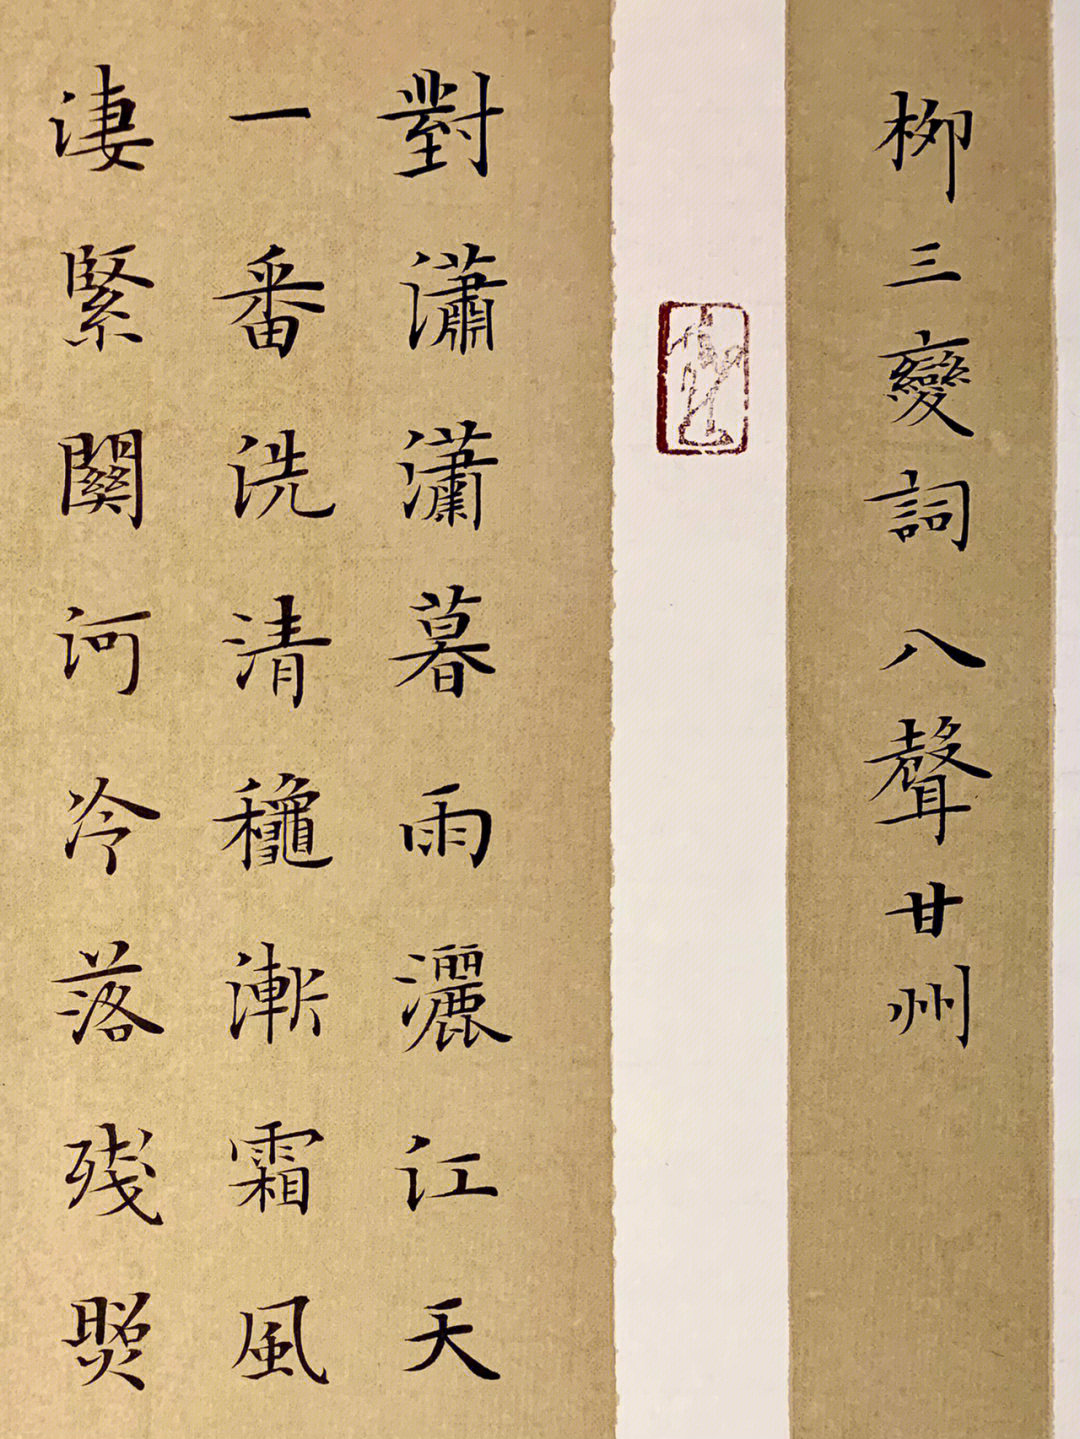 柳三變詞八聲甘州
對瀟瀟暮雨灑江天
一番洗清龝漸霜風
淒緊關河冷落殘照